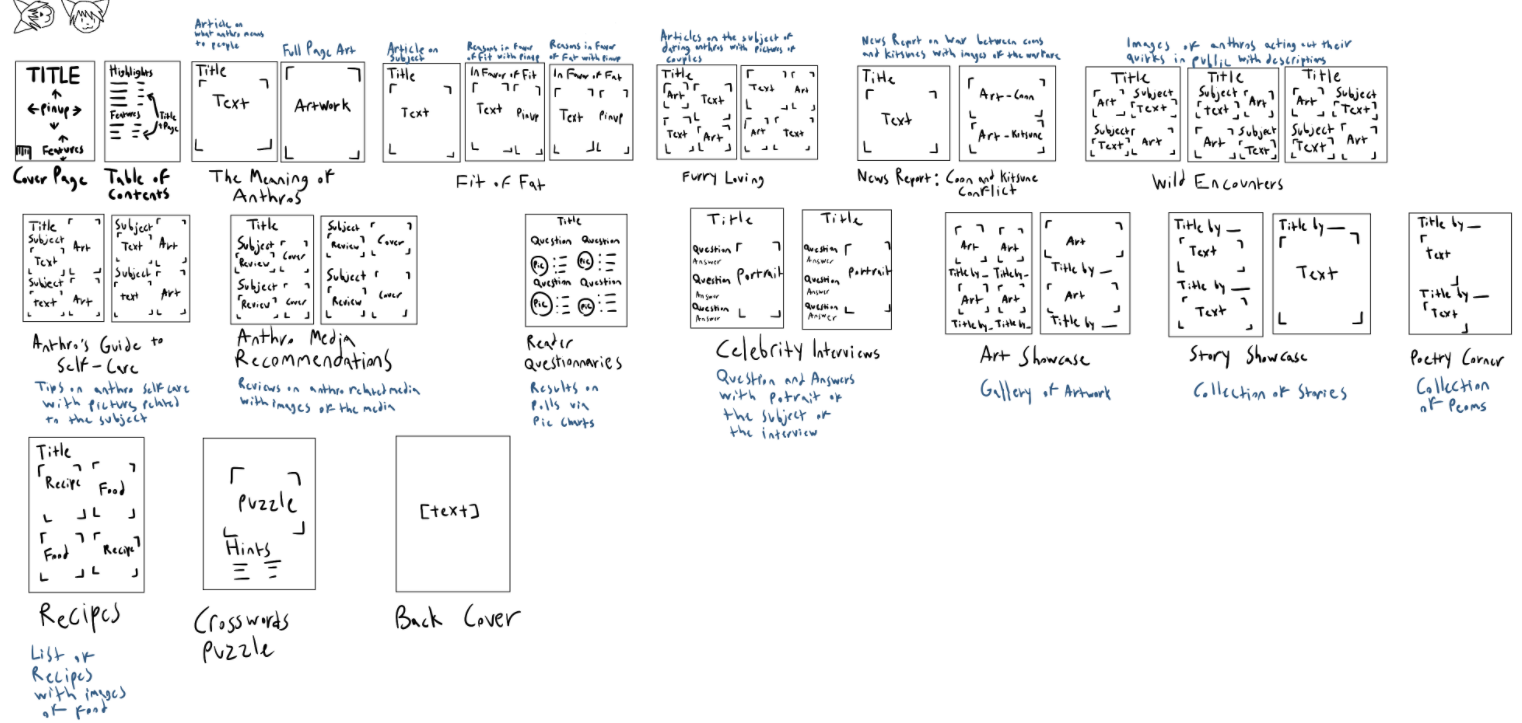 Article on
what anthro means
to people
Full Page Art
Article on
Subject
Reasons in Favor
of Fit with Pinup
Reasons in Favor
of Fat with Pinup
Articles on the subject of
dating anthros with pictures of
couples
News Report on War between coons
and kitsunes with images of the warfare
Images of anthros acting out their
quirks in public with descriptions
TITLE
Pinup
Features
Cover Page
Highlights
Features
Title
+ Page
Table of
Contents
Title
Text
Artwork
The Meaning of
Anthros
Title
Text
In Favor of Fit
Text Pinup
In Favor of Fat
Text Pinup
Fit of Fat
Title
Art Text
Text Art
Text Art
Art Text
Furry Loving
Title
Text
Art-Coon
Art-Kitsune
News Report: Coon and Kitsune
Conflict
Title
Art Subject
Text
Subject
Text Art
Title
Subject
Text Art
Art Subject
Text
Title
Art Subject
Text
Subject
Text Art
Wild Encounters
Title
Subject Art
Text
Subject
text Art
Subject
Text Art
Subject
text Art
Anthro's Guide to
Self-Care
Tips on anthro self care
with picture related
to the subject
Title
Subject
Review Cover
Subject
Review Cover
Subject
Review Cover
Subject
Review Cover
Anthro Media
Recommendations
Reviews on anthro related media
with images of the media
Title
Question Question
Pic Pic
Question Question
Pic Pic
Reader
Questionnaries
Results on
Polls via
Pie Charts
Title
Question
Answer
Question Portrait
Answer
Question
Answer
Title
Question
Answer
Question Portrait
Answer
Question
Answer
Celebrity Interviews
Question and Answers
with potrait of
the subject of
the interview
Art Art
Title by_ Title by_
Art Art
Title by_ Title by_
Art
Title by _
Art
Title by _
Art Showcase
Gallery of Artwork
Title by _
Text
Title by _
Text
Title by _
Text
Story Showcase
Collection of Stories
Title by _
Text
Title by _
Text
Poetry Corner
Collection
of Peoms
Title
Recipe Food
Food Recipe
Recipes
List of
Recipes
with images
of food
Puzzle
Hints
Crosswords
Puzzle
[text]
Back Cover